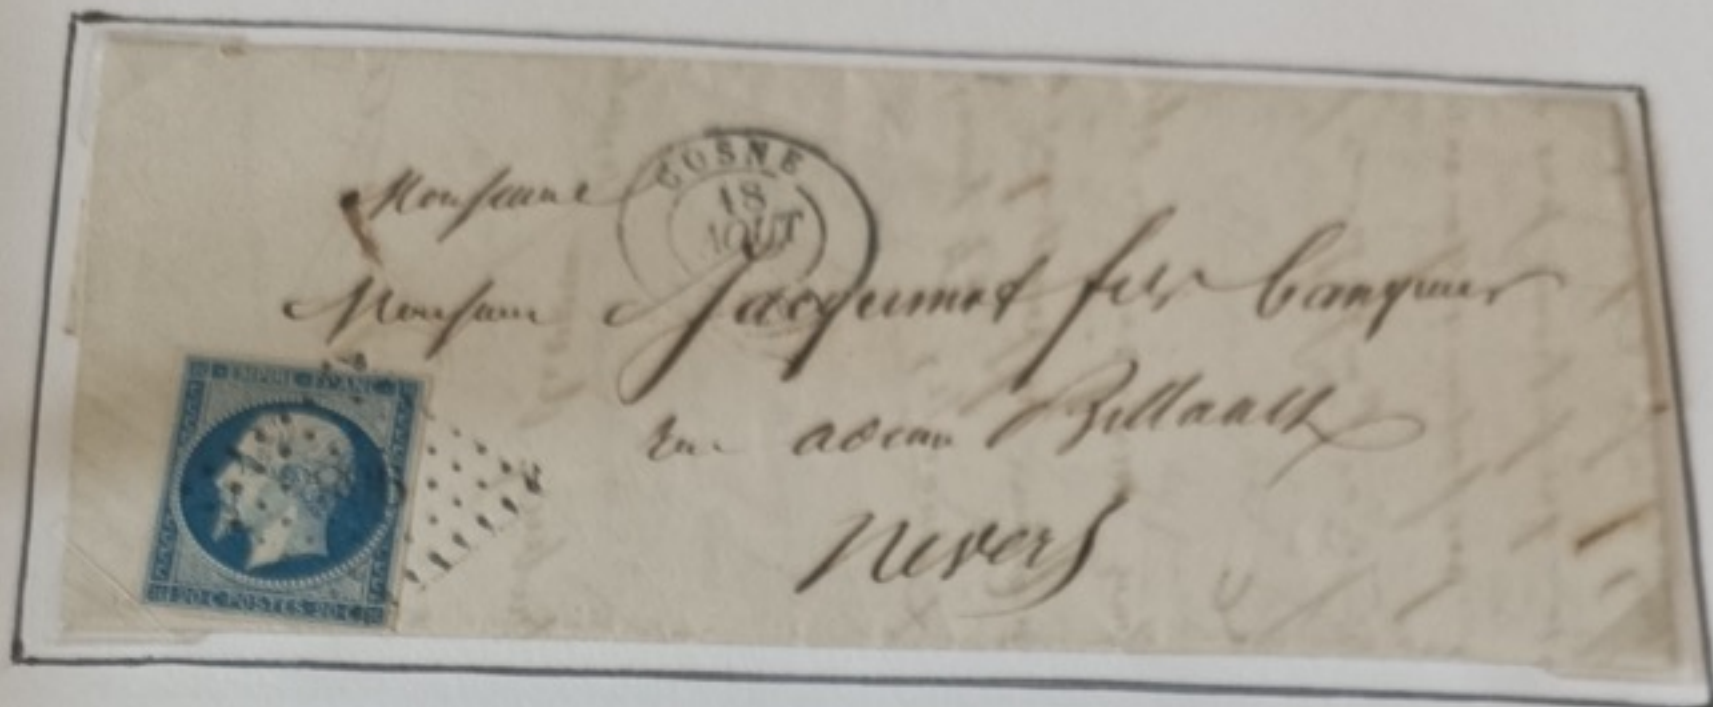 COSNE
18
AOUT
Monsieur
Monsieur Jacquinot fils banquier
rue adam Billault
Nevers
EMPIRE FRANC
20 C POSTES 20 C